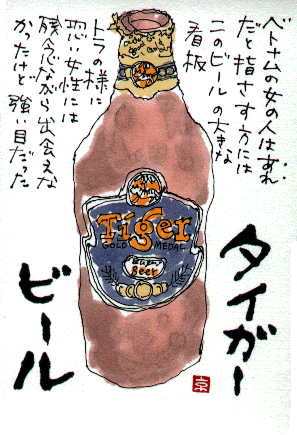 ベトナムの女の人はあれ
だと指さす方には
このビールの大きな
看板
トラの様に
恐い女性には
残念ながら出会えな
かったけど強い目だった
Tiger
GOLD MEDAL
Beer
タイガー
ビール
京